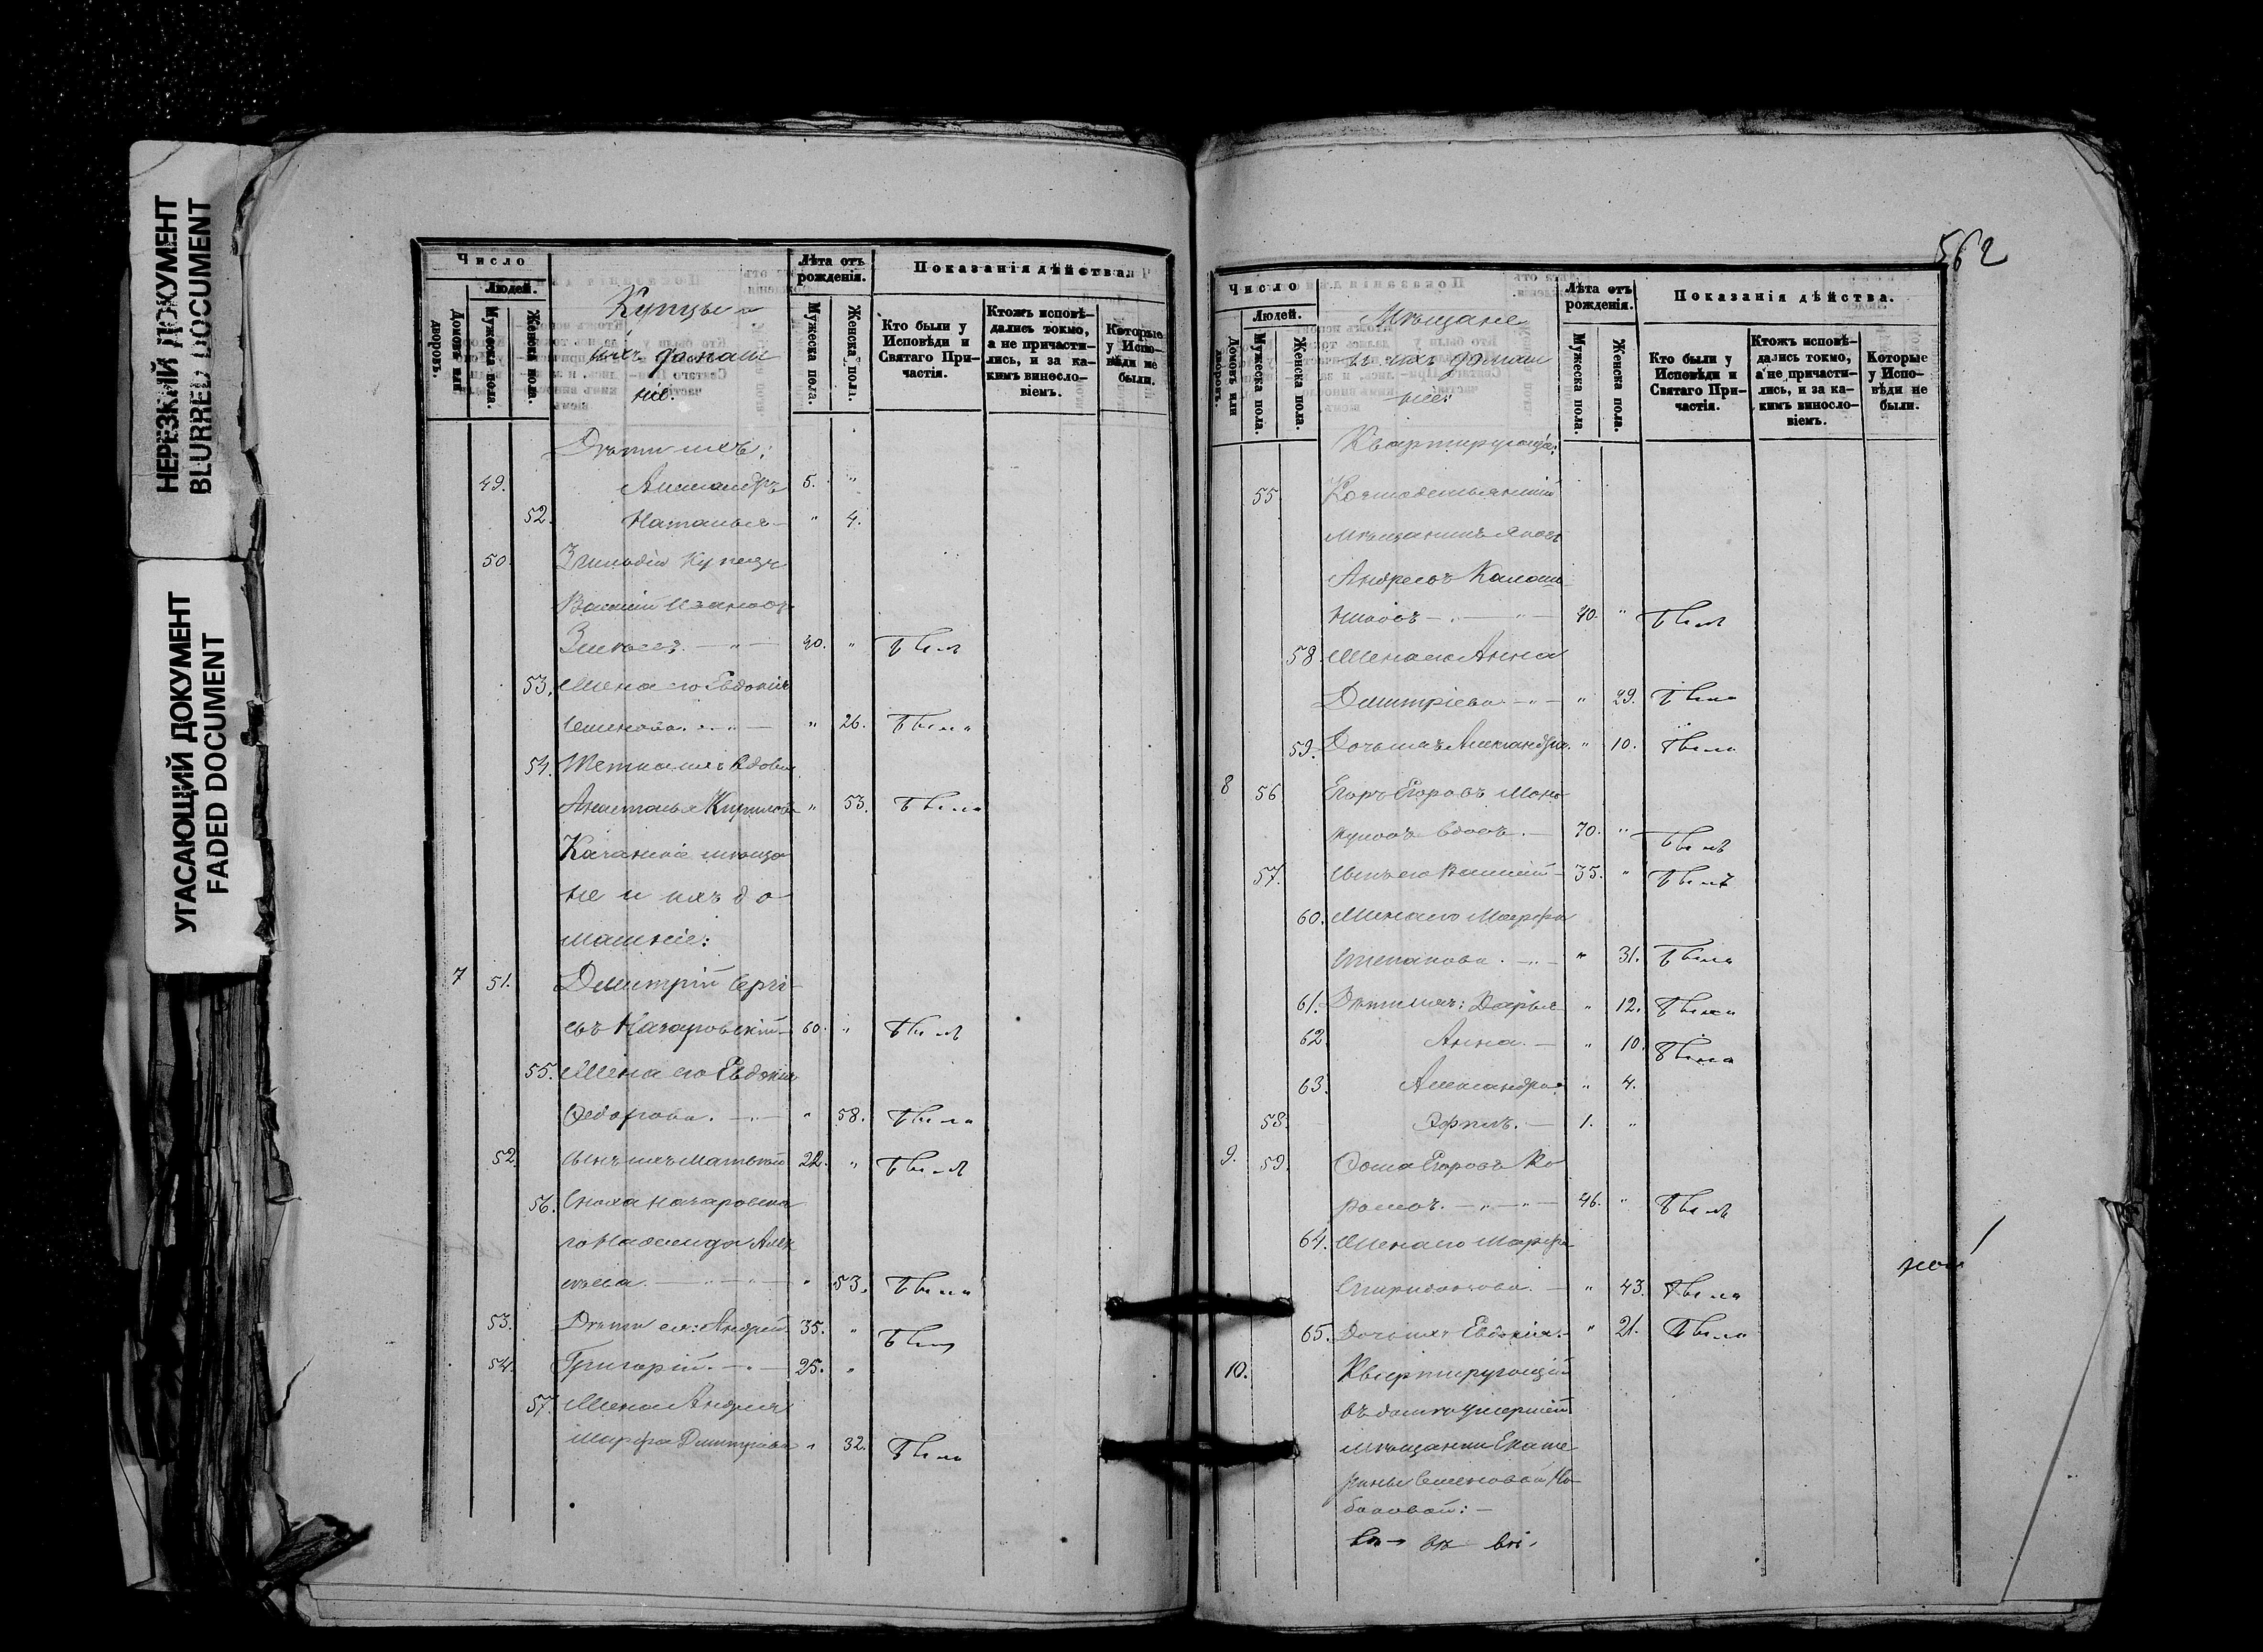 НЕРЕЗКИЙ ДОКУМЕНТ
BLURRED DOCUMENT
УГАСАЮЩИЙ ДОКУМЕНТ
FADED DOCUMENT
Число
Людей.
Домовъ или дворовъ.
Мужеска пола.
Женска пола.
Купцы и
ихъ домаш
ніе.
Лѣта отъ рожденія.
Мужеска пола.
Женска пола.
Показанія дѣйства.
Кто были у Исповѣди и Святаго Причастія.
Ктожъ исповѣдались токмо, а не причастились, и за какимъ винословіемъ.
Которые у Исповѣди не были.
Дѣти ихъ:
49. Александръ 5. "
52. Наталья - " 4.
50. купецъ
Василій Ивановъ
40. " былъ
53. Жена его Евдокія
Семенова. - " 26. была
54. Тетка ихъ вдова
Анастасья Кирилова " 53. была
Казанскіе мѣща
не и ихъ до
машніе:
7 51. Димитрій Сергѣ
евъ Назаровскій - 60. " былъ
55. Жена его Евдокія
Ѳедорова. - " 58. была
52. Сынъ ихъ Матвѣй 22. " былъ
56. Сноха Назаровска
го Надежда Алек
сѣева. - " 53. была
53. Дѣти ея: Андрей. 35. " былъ
54. Григорій. - 25. "
57. Жена Андрея
Марфа Димитріева " 32. была
562
Число
Людей.
Домовъ или дворовъ.
Мужеска пола.
Женска пола.
Мѣщане
и ихъ домаш
ніе:
Лѣта отъ рожденія.
Мужеска пола.
Женска пола.
Показанія дѣйства.
Кто были у Исповѣди и Святаго Причастія.
Ктожъ исповѣдались токмо, а не причастились, и за какимъ винословіемъ.
Которые у Исповѣди не были.
Квартирующіе:
55 Козмодемьянскій
мѣщанинъ Яковъ
Андреевъ Калаш
никовъ - " - 40. " былъ
58. Жена его Анна
Димитріева - " 29. была
59. Дочь ихъ Александра. " 10. была
8 56 Егоръ Егоровъ
вдовъ. - 70. " былъ
57. Сынъ его Василій - 35. " былъ
60. Жена его Марфа
Степанова. - " 31. была
61. Дѣти ихъ: Дарья " 12. была
62 Анна. - " 10. была
63. Александра " 4.
58. - 1. "
9. 59. Ѳома Егоровъ Ко
46. " былъ
64. Жена его Марфа
Спиридонова. - " 43. была
65. Дочь ихъ Евдокія. - " 21. была
10. Квартирующій
въ домѣ умершей
мѣщанки Екате
рины Семеновой